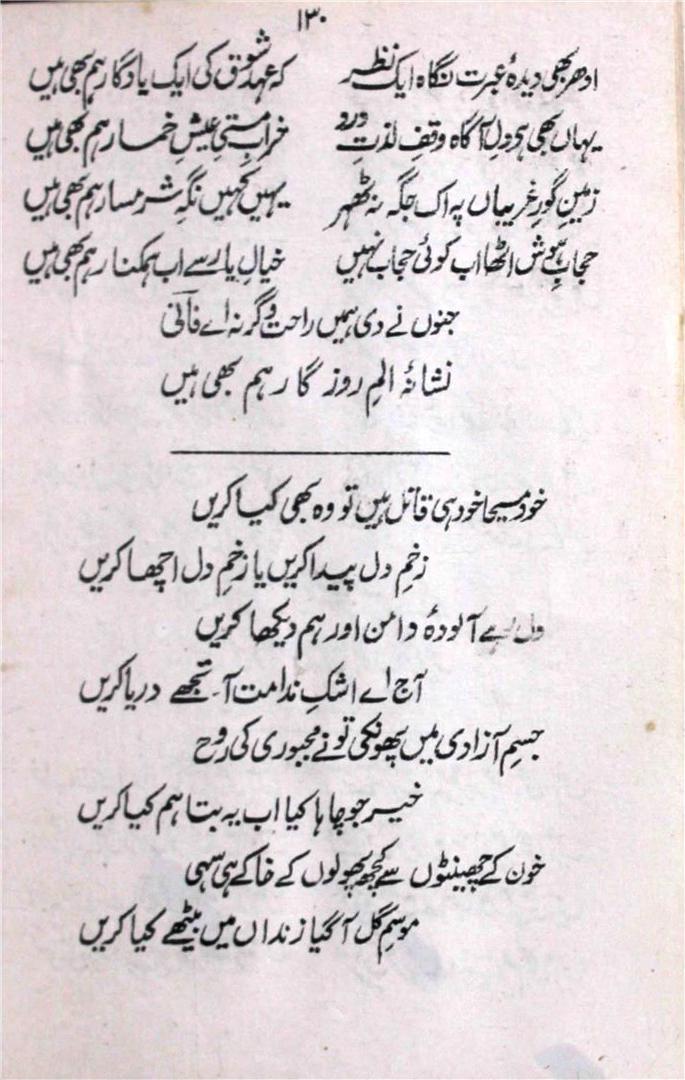 ۱۳۰
ادھر بھی دیدۂ عبرت نگاہ ایک نظر کہ عہد شوق کی ایک یادگار ہم بھی ہیں
یہاں بھی ہی دلِ آگاہ وقفِ لذتِ درد خرابِ مستیِ عیشِ خمار ہم بھی ہیں
زمینِ گورِ غریباں پہ اک جگہ نہ ٹھہر یہیں کہیں نگہِ شرمسار ہم بھی ہیں
حجابِ ہوش اٹھا اب کوئی حجاب نہیں خیالِ یار سے اب ہمکنار ہم بھی ہیں
جنوں نے دی ہمیں راحت وگرنہ اے فانیؔ
نشانۂ المِ روزگار ہم بھی ہیں
خود مسیحا خود ہی قاتل ہیں تو وہ بھی کیا کریں
زخمِ دل پیدا کریں یا زخمِ دل اچھا کریں
دل رہے آلودۂ دامن اور ہم دیکھا کریں
آج اے اشکِ ندامت آ۔ تجھے دریا کریں
جسمِ آزادی میں پھونکی تو نے مجبوری کی روح
خیر جو چاہا کیا اب یہ بتا ہم کیا کریں
خون کے چھینٹوں سے کچھ پھولوں کے خاکے ہی سہی
موسمِ گل آگیا زنداں میں بیٹھے کیا کریں